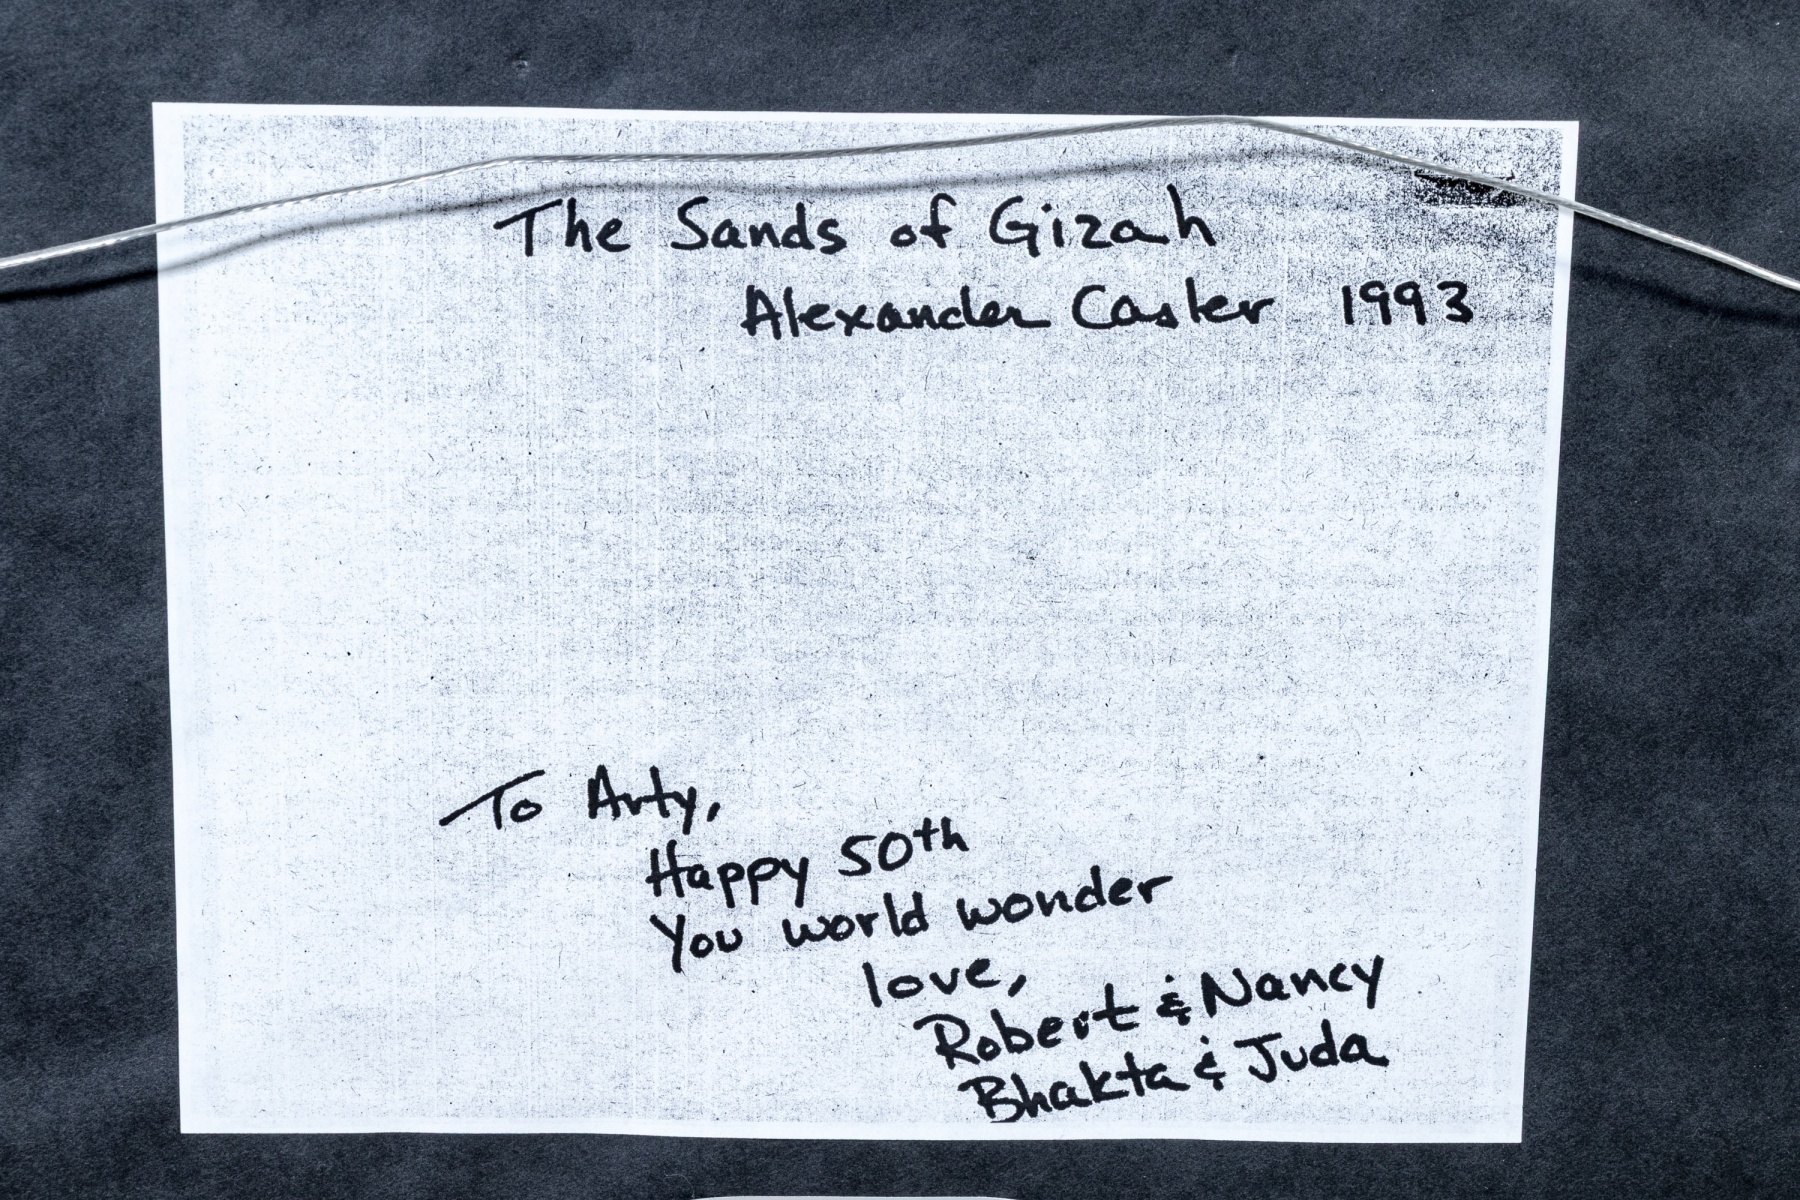 The Sands of Gizah
Alexander Casler 1993
To Arty,
Happy 50th
You world wonder
love,
Robert & Nancy
Bhakta & Juda